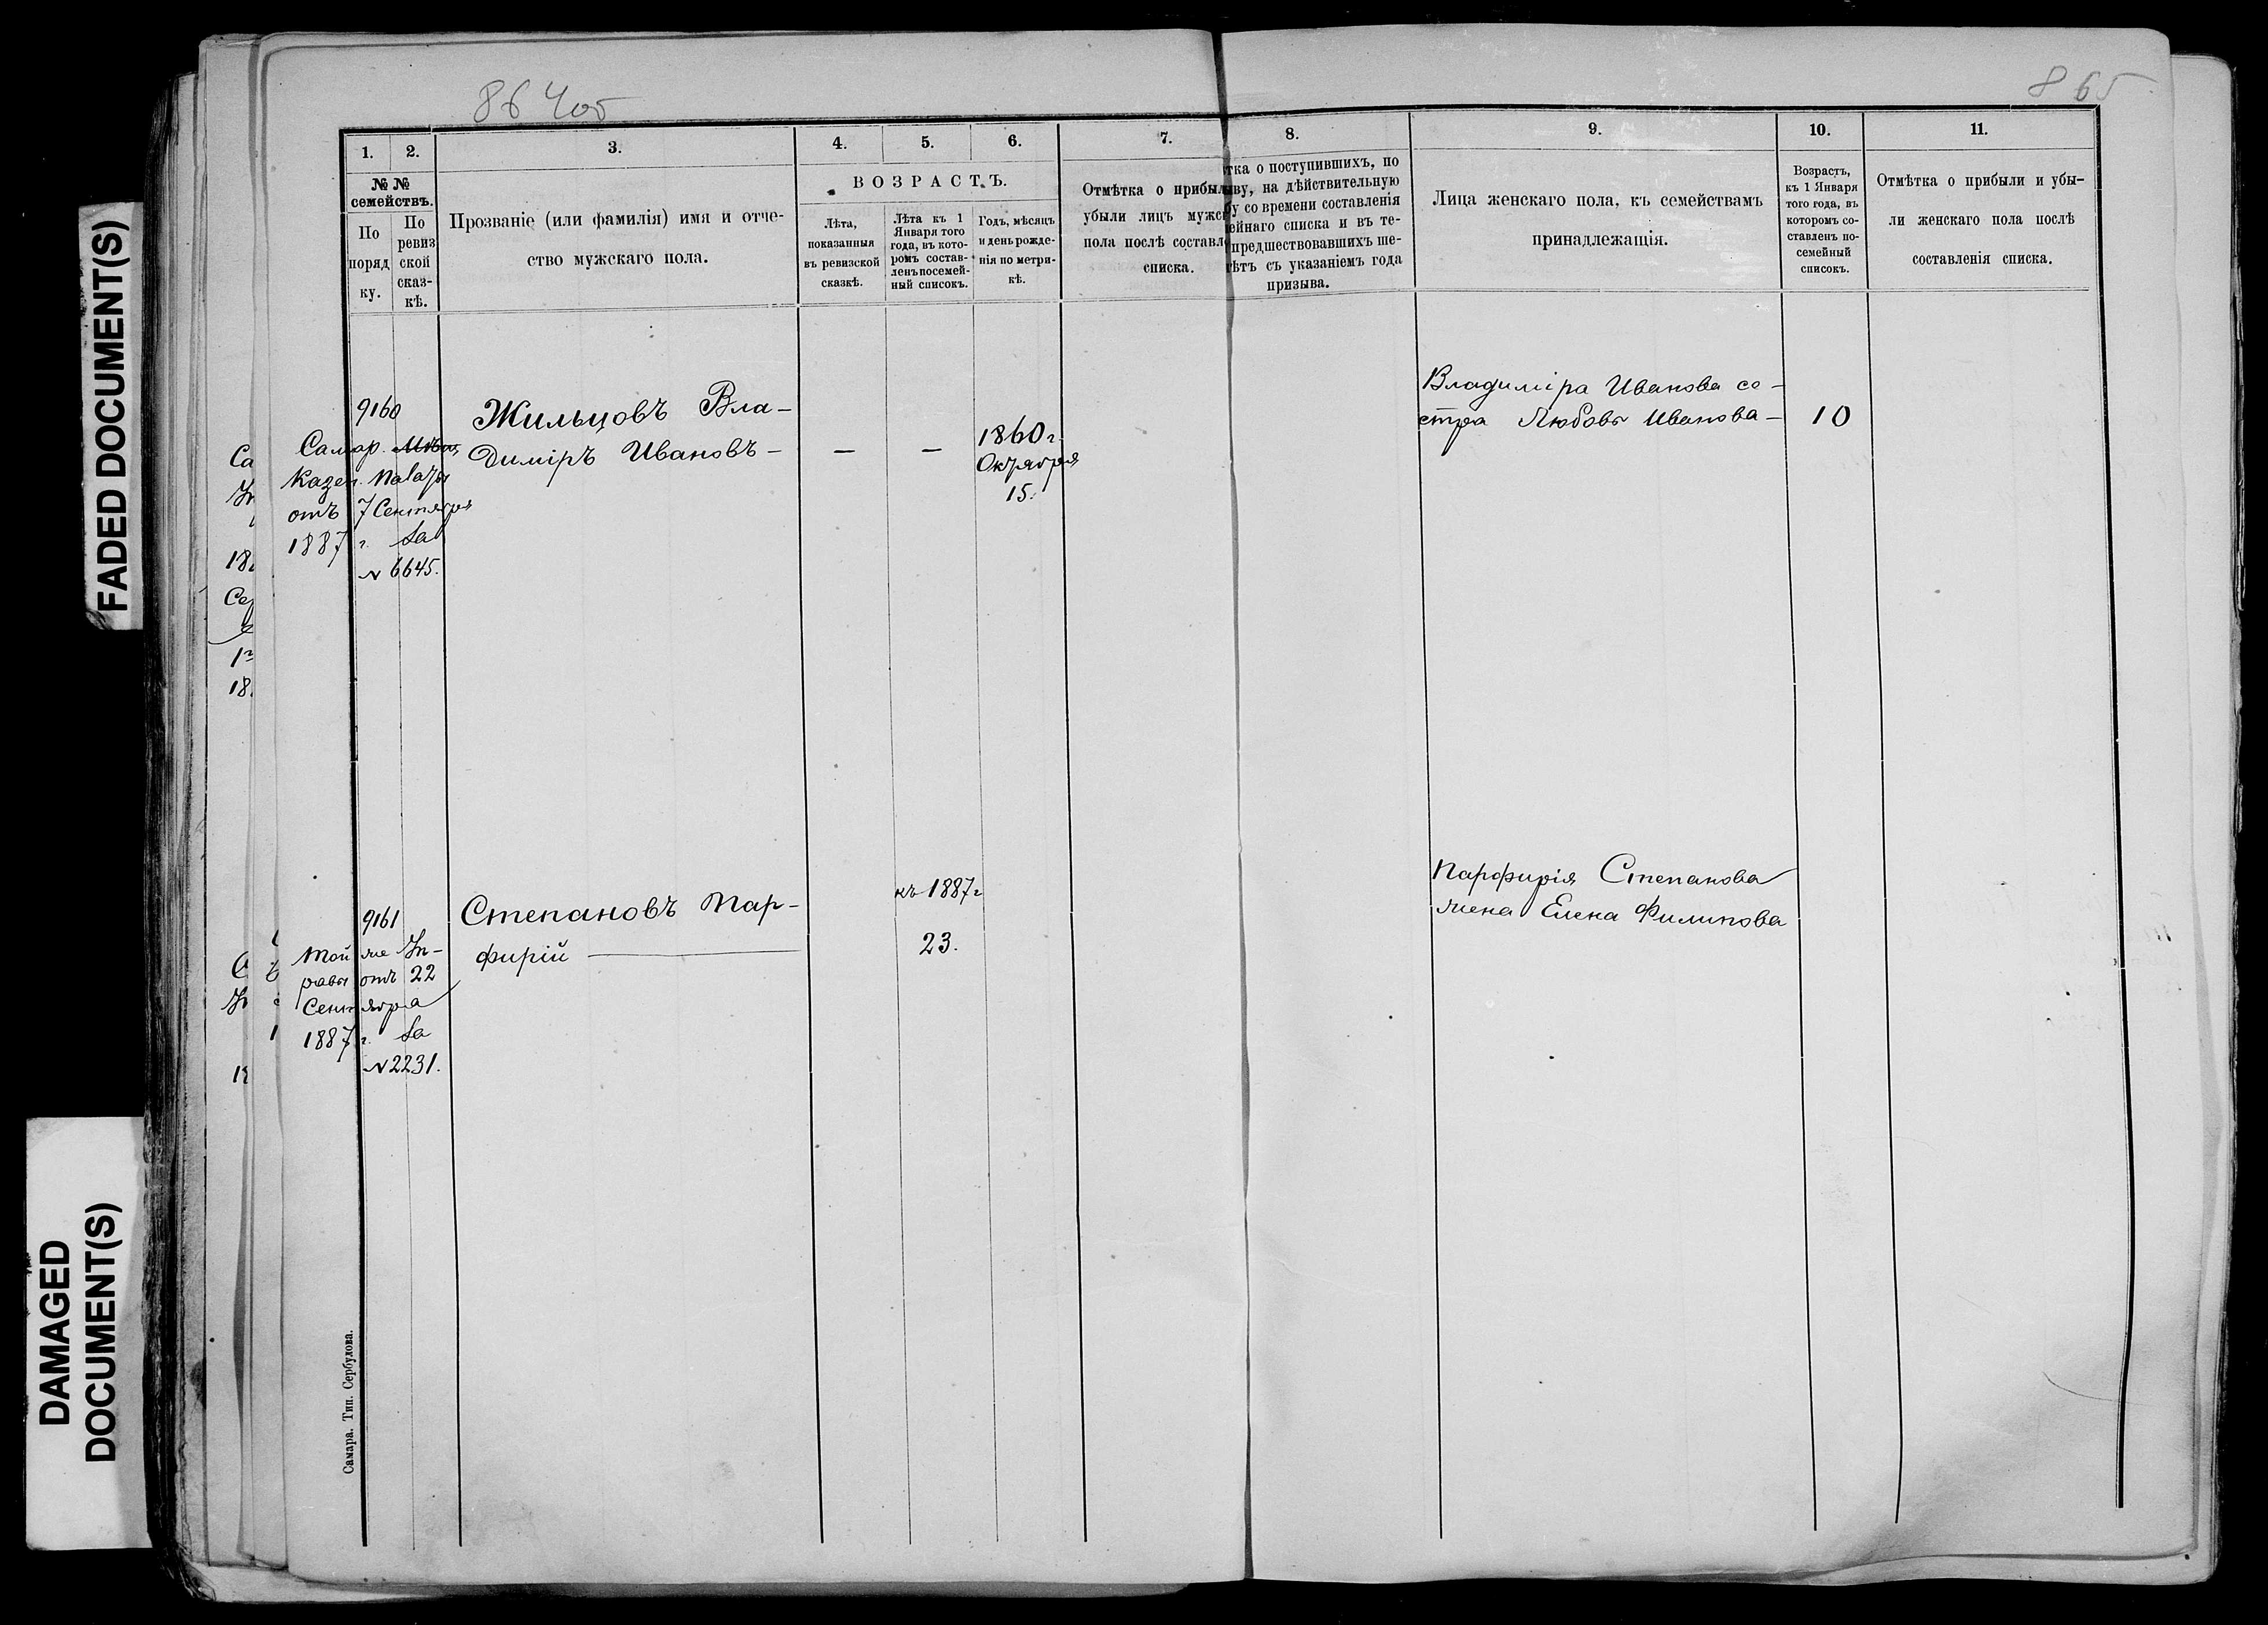 FADED DOCUMENT(S)
DAMAGED
DOCUMENT(S)
865
1. 2. 3. 4. 5. 6. 7. 8. 9. 10. 11.
№ №
семействъ.
По
поряд
ку.
По
ревиз
ской
сказ-
кѣ.
Прозваніе (или фамилія) имя и отче-
ство мужскаго пола.
ВОЗРАСТЪ.
Лѣта,
показанныя
въ ревизской
сказкѣ.
Лѣта къ 1
Января того
года, въ кото-
ромъ состав-
ленъ посемей-
ный списокъ.
Годъ, мѣсяцъ
и день рожде-
нія по метри-
кѣ.
Отмѣтка о прибыл
убыли лицъ мужск
пола послѣ составл
списка.
тка о поступившихъ, по
ыву, на дѣйствительную
бу со времени составленія
ейнаго списка и въ те-
предшествовавшихъ ше-
лѣтъ съ указаніемъ года
призыва.
Лица женскаго пола, къ семействамъ
принадлежащія.
Возрастъ,
къ 1 Января
того года, въ
которомъ со-
ставленъ по-
семейный
списокъ.
Отмѣтка о прибыли и убы-
ли женскаго пола послѣ
составленія списка.
9160
Самар.
Казен. Палаты
отъ 7 Сентября
1887 г. за
№ 6645.
Жильцовъ Вла-
диміръ Ивановъ –
— —
1860 г.
Октября
15.
Владиміра Иванова се-
стра Любовь Иванова – 10
9161
Той же Уп-
равы отъ 22
Сентября
1887 г. за
№ 2231.
Степановъ Пар-
фирій —
къ 1887 г
23.
Парфирія Степанова
жена Елена Филипова
Самара. Тип. Сербулова.